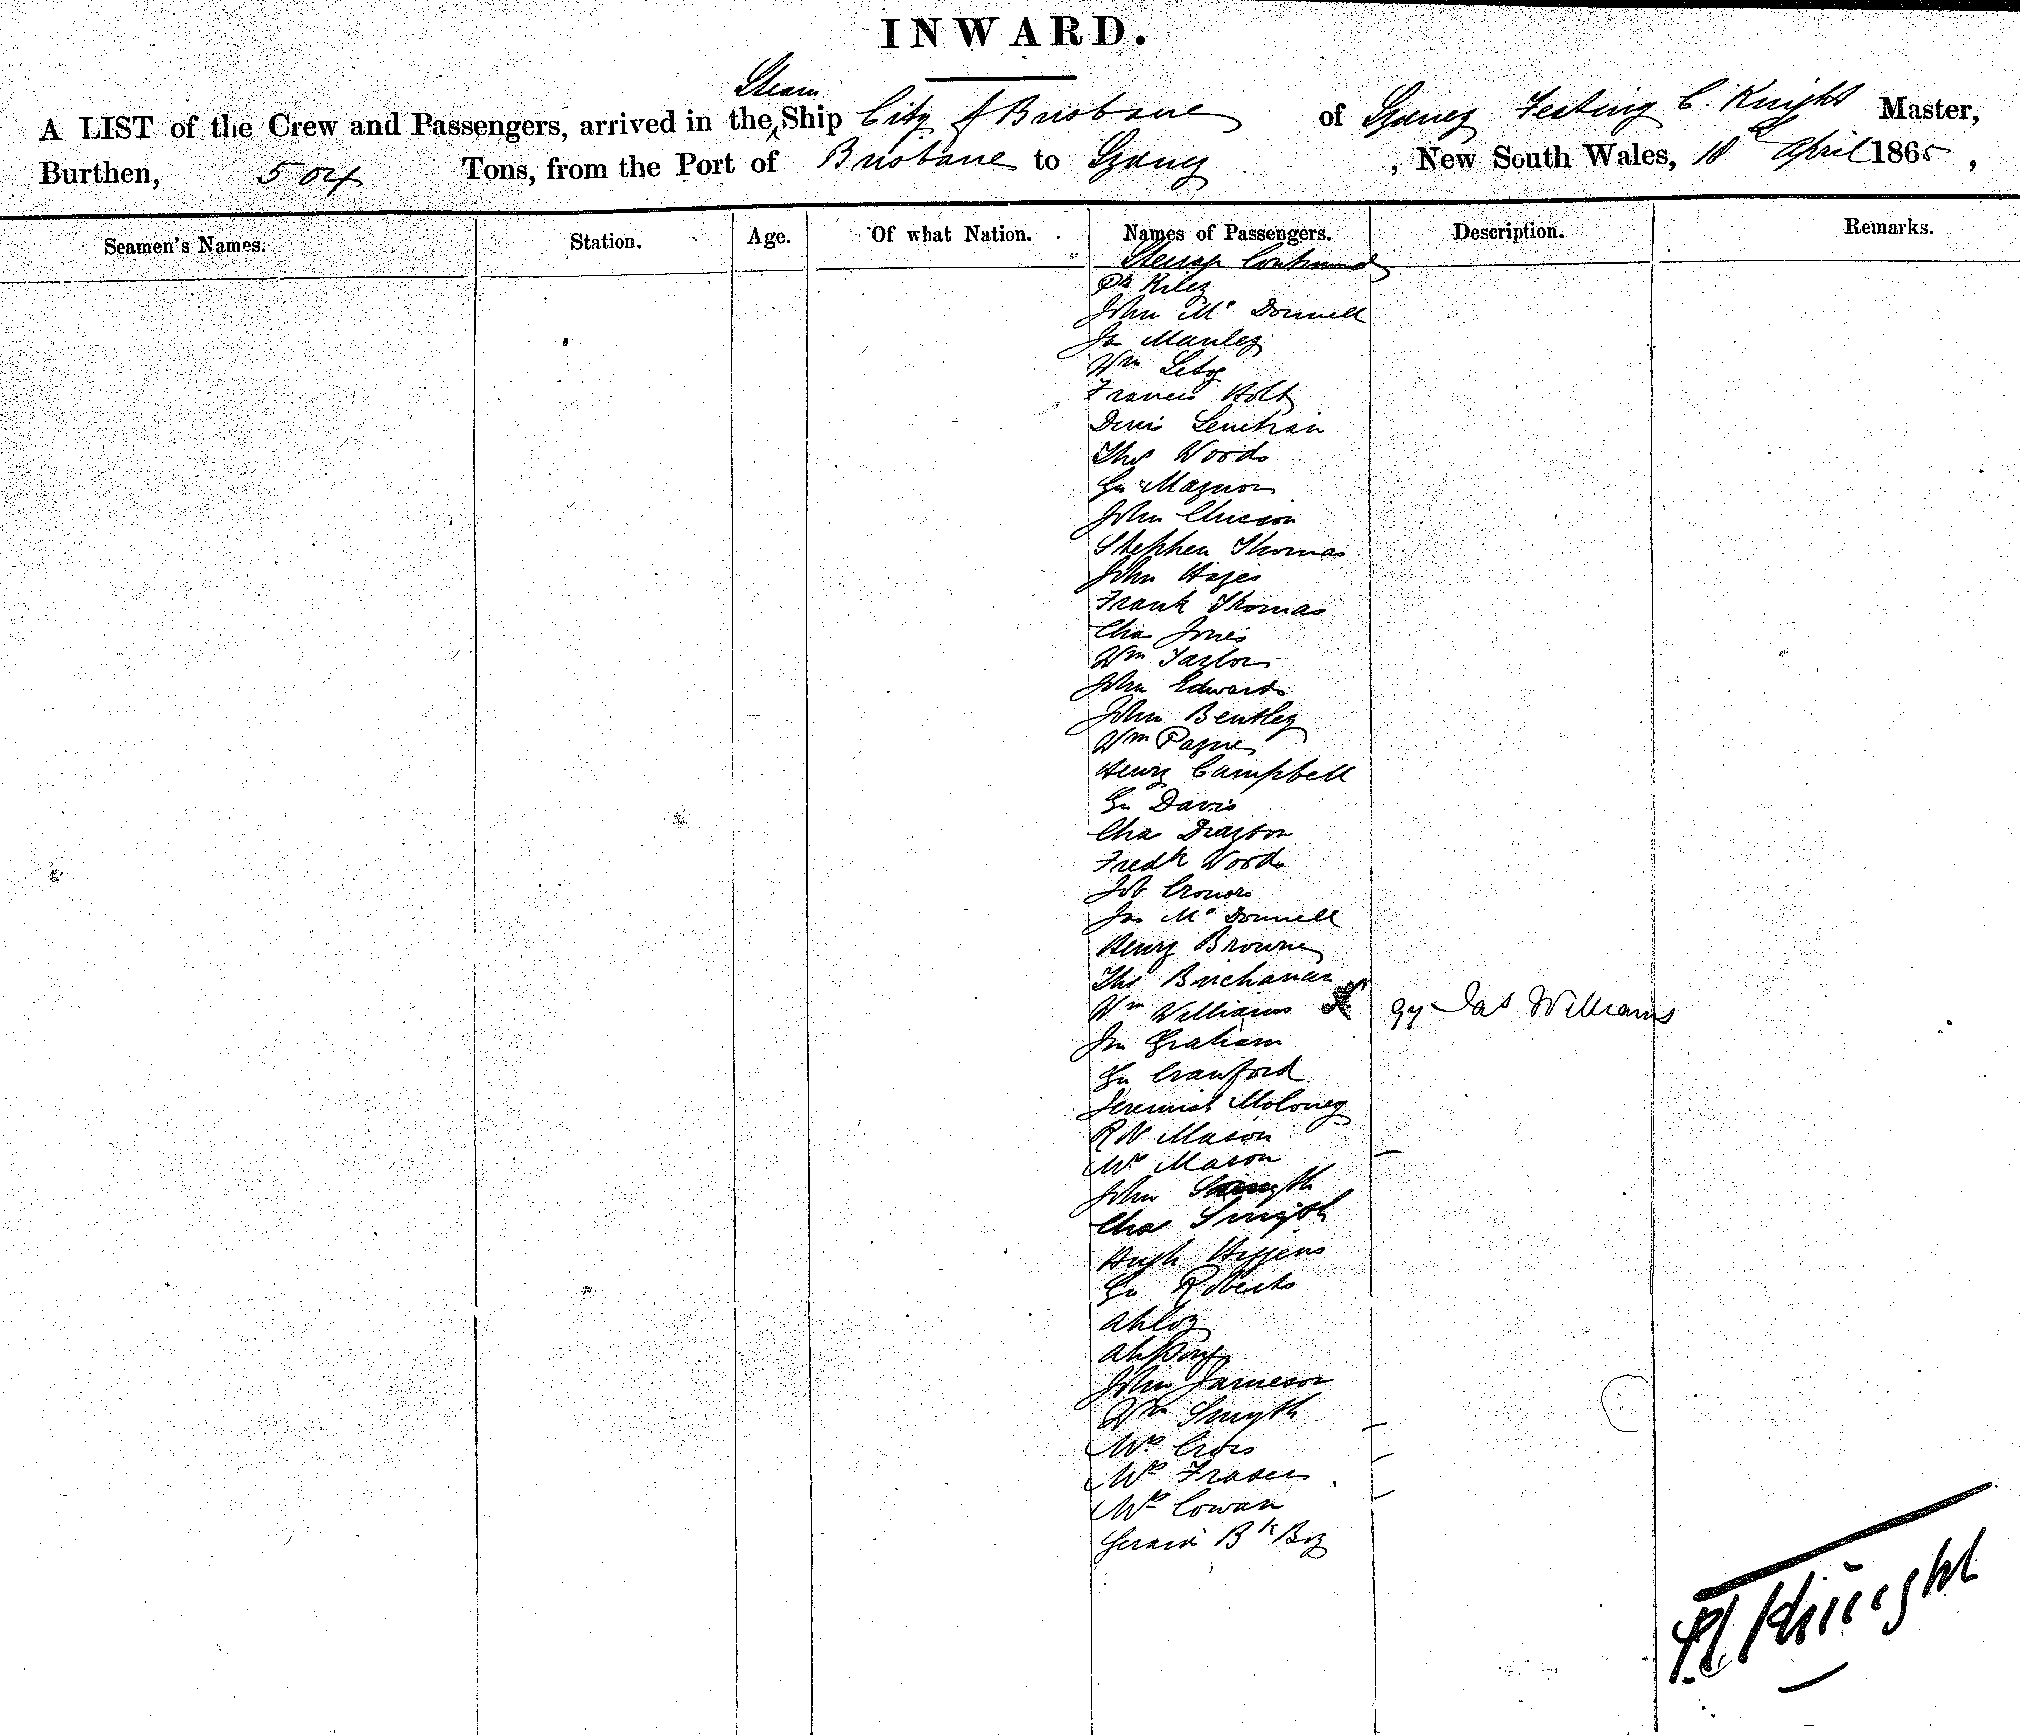 INWARD.
Steam
A LIST of the Crew and Passengers, arrived in the Ship City of Brisbane of Sydney Festing C. Knight Master,
Burthen, 504 Tons, from the Port of Brisbane to Sydney, New South Wales, 18th April 1865,
Seamen's Names. Station. Age. Of what Nation. Names of Passengers. Description. Remarks.
Steerage Continued
Riley
John Mc Donnell
Manley
Wm
Francis Holt
Denis Lenihan
Thos Woods
John
Stephen Thomas
John Hayes
Frank Thomas
Chas Jones
Wm Taylor
John Edwards
John Bentley
Wm Payne
Henry Campbell
Geo Davis
Chas Drayton
Fredk Woods
Job
Jas Mc Donnell
Henry Browne
Thos Buchanan
Wm Williams qy Jas Williams
Jn Graham
Geo Crawford
Jeremiah Moloney
R W Mason
Mrs Mason
John Smyth
Chas Smyth
Hugh Higgins
Geo Roberts
Ahloy
John Jameson
Wm Smyth
Mrs
Mrs Fraser
Mrs Cowan
Bk Boy
Knight